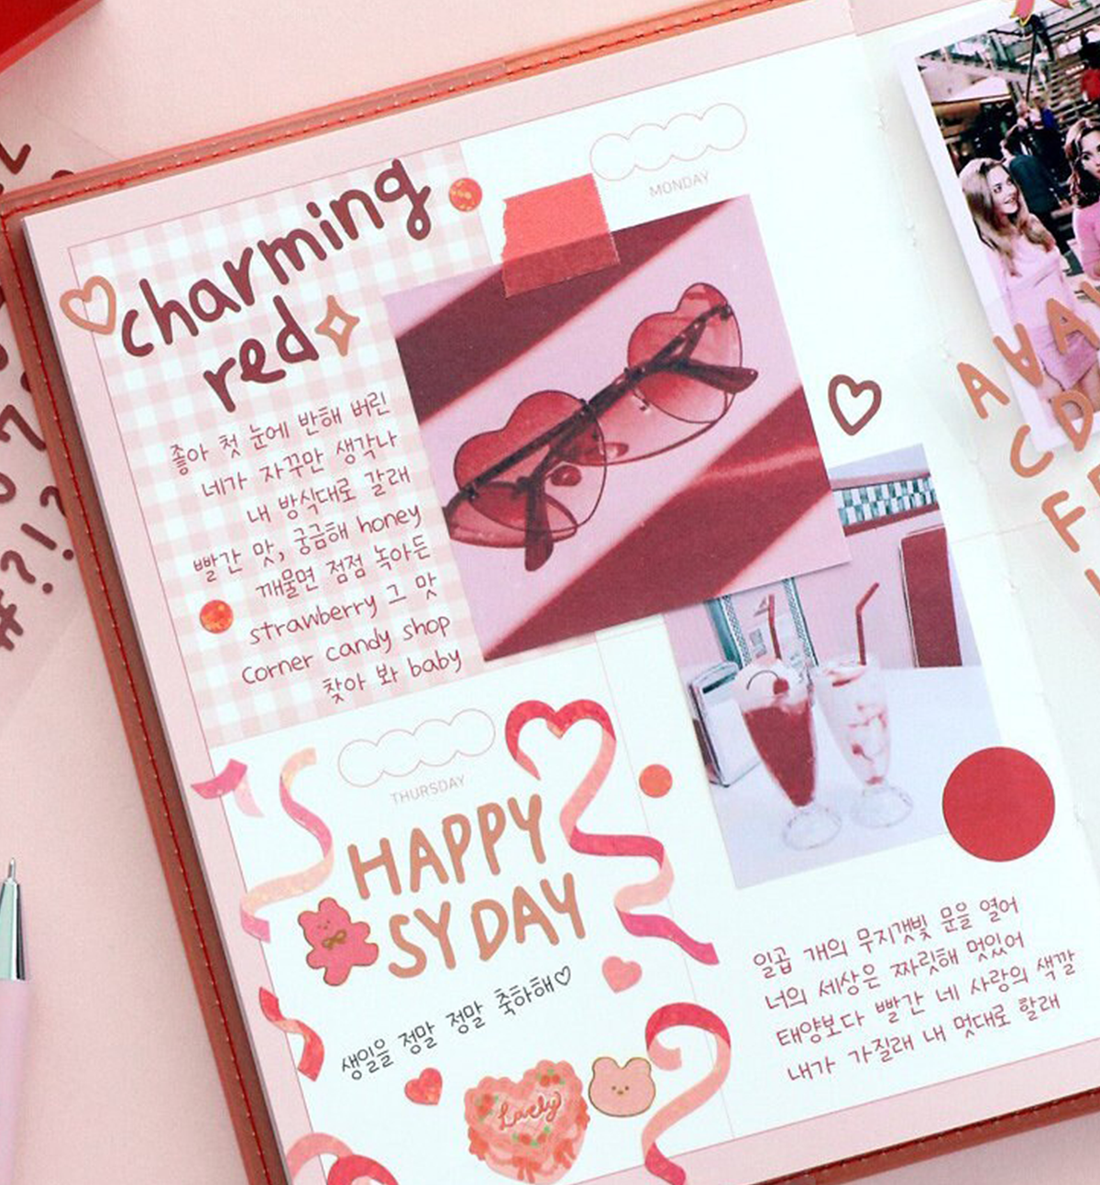 MONDAY
charming
red
좋아 첫 눈에 반해 버린
네가 자꾸만 생각나
내 방식대로 갈래
빨간 맛, 궁금해 honey
깨물면 점점 녹아든
strawberry 그 맛
corner candy shop
찾아 봐 baby
THURSDAY
HAPPY
SY DAY
생일을 정말 정말 축하해♡
Lovely
일곱 개의 무지갯빛 문을 열어
너의 세상은 짜릿해 멋있어
태양보다 빨간 네 사랑의 색깔
내가 가질래 내 멋대로 할래
A
C D
F
#?!?